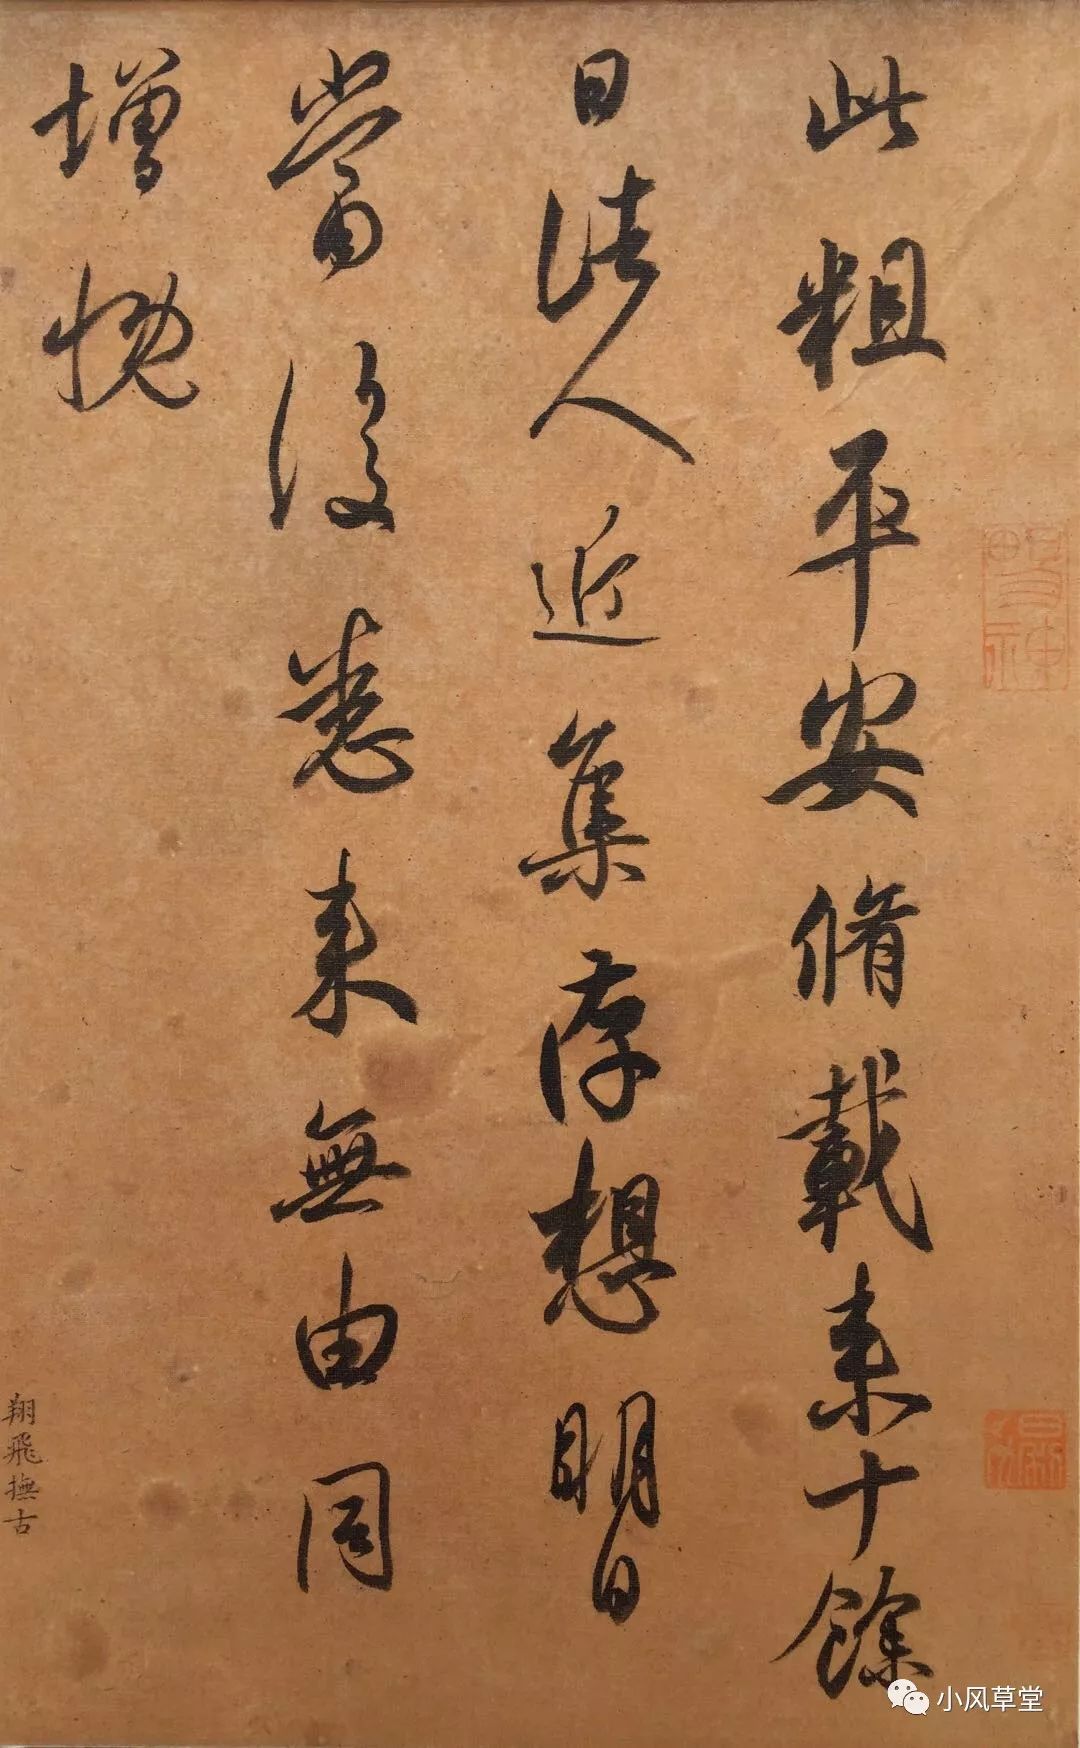 此粗平安脩載來十餘
日諸人近集存想明日
當復悉來無由同
增慨
翔飛撫古
小风草堂